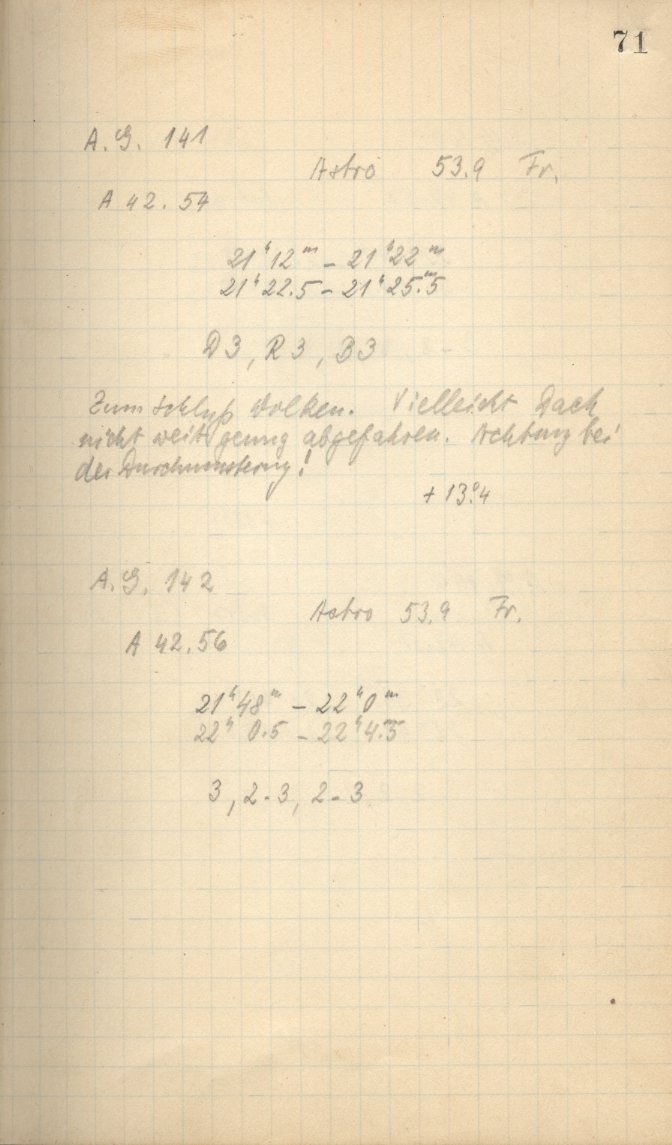 71
A.G. 141
Astro 53.9 Fr.
A 42.54
21ʰ12ᵐ – 21ʰ22ᵐ
21ʰ22.5 – 21ʰ25.ᵐ5
D3, R3, B3
Zum Schluß Wolken. Vielleicht Dach
nicht weit genug abgefahren. Achtung bei
der Durchmusterung!
+ 13.°4
A.G. 142
Astro 53.9 Fr.
A 42.56
21ʰ48ᵐ – 22ʰ0ᵐ
22ʰ 0.5 – 22ʰ4.ᵐ5
3, 2-3, 2-3